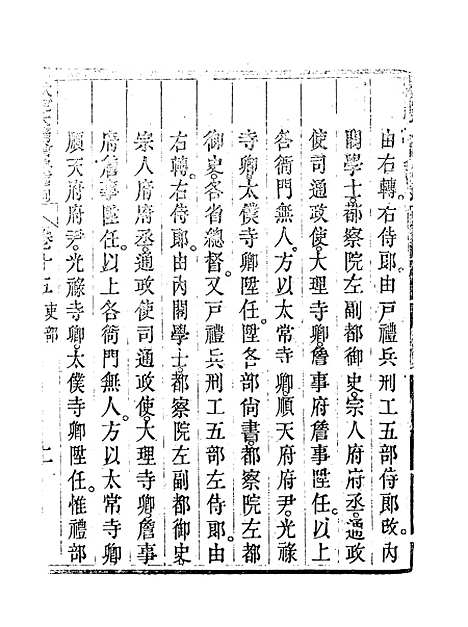 由右轉。右侍郎。由戶禮兵刑工五部侍郎改。內
閣學士。都察院左副都御史。宗人府府丞。通政
使司通政使。大理寺卿。詹事府詹事陞任。以上
各衙門無人。方以太常寺卿。順天府府尹。光祿
寺卿。太僕寺卿陞任。陞各部尚書。都察院左都
御史。各省總督。又戶禮兵刑工五部左侍郎。由
右轉。右侍郎。由內閣學士。都察院左副都御史
宗人府府丞。通政使司通政使。大理寺卿。詹事
府詹事陞任。以上各衙門無人。方以太常寺卿
順天府府尹。光祿寺卿。太僕寺卿陞任。惟禮部
卷十五 吏部